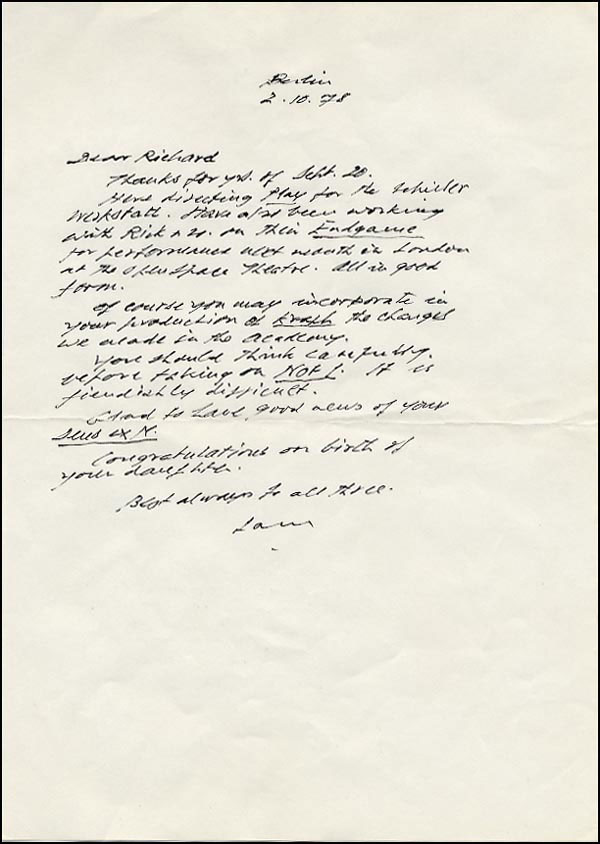 Berlin
2.10.78
Dear Richard
Thanks for yrs. of Sept. 20.
Here directing Play for the Schiller
Werkstatt. Have also been working
with Rick & Co. on their Endgame
for performance next month in London
at the Open Space Theatre. All in good
form.
Of course you may incorporate in
your production of Krapp the changes
we made in the Academy.
You should think carefully
before taking on Not I. It is
fiendishly difficult.
Glad to have good news of your
Deus ex M.
Congratulations on birth of
your daughter.
Best always to all three.
Sam